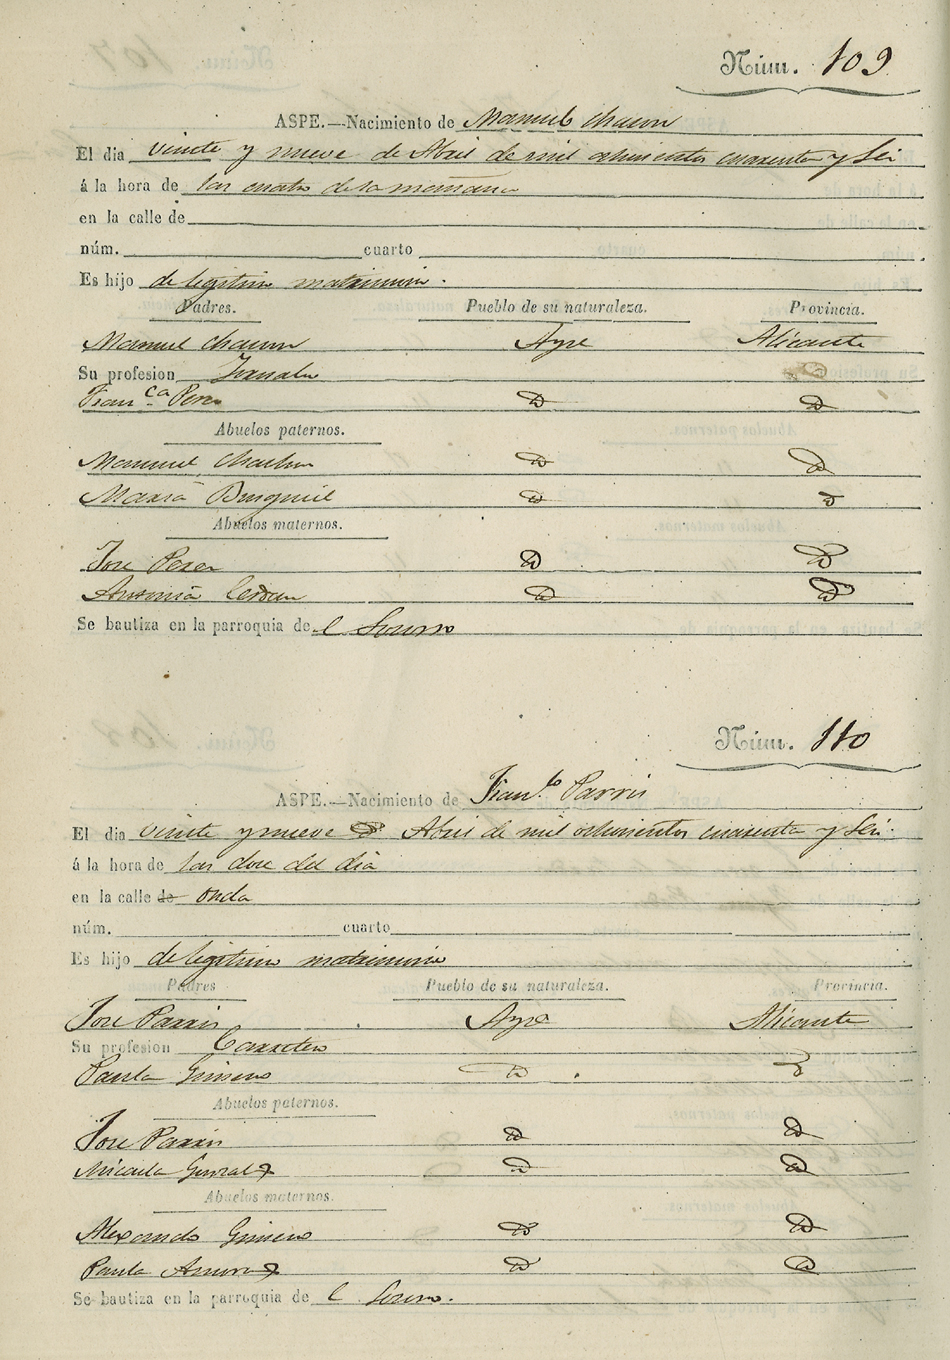 Núm. 109
ASPE.—Nacimiento de Manuel
El dia veinte y nueve de Abril de mil ochocientos cuarenta y Sei
á la hora de las cuatro de la mañana
en la calle de
núm. cuarto
Es hijo de legitimo matrimonio.
Padres. Pueblo de su naturaleza. Provincia.
Manuel Aspe Alicante
Su profesion
Fran.ca Perez D D
Abuelos paternos.
Manuel D D
Maria D D
Abuelos maternos.
Jose Perez D D
Antonia Cerdan D D
Se bautiza en la parroquia de l Socorro
Núm. 110
ASPE.—Nacimiento de Fran.co Parris
El dia veinte y nueve D Abril de mil ochocientos cuarenta y Sei.
á la hora de las doce del dia
en la calle de onda
núm. cuarto
Es hijo de legitimo matrimonio
Padres Pueblo de su naturaleza. Provincia.
Jose Parris Aspe Alicante
Su profesion Carretero
Paula Gimeno D D
Abuelos paternos.
Jose Parris D D
Micaela Gonzalez D D
Abuelos maternos.
Alexandro Gimeno D D
Paula D D
Se bautiza en la parroquia de l Socorro.